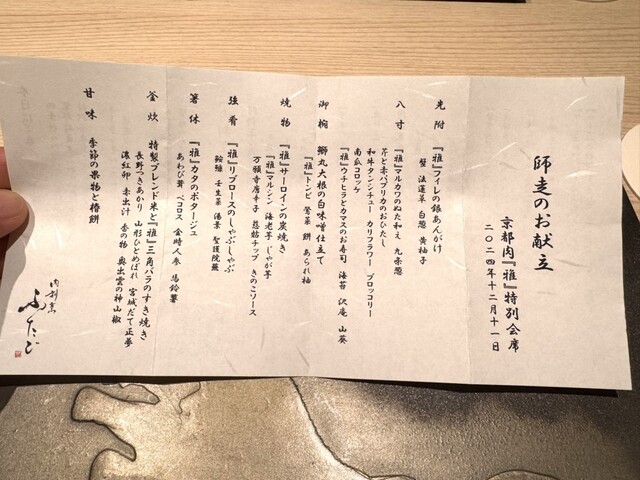 師走のお献立
京都肉『雅』特別会席
二〇二四年十二月十一日
先附 『雅』フィレの銀あんかけ
蟹 法蓮草 白葱 黄柚子
八寸 『雅』マルカワのぬた和え 九条葱
芹と赤パプリカのおひたし
和牛タンシチュー カリフラワー ブロッコリー
南瓜コロッケ
『雅』ウチヒラとカマスのお寿司 海苔 沢庵 山葵
御椀 鰤丸大根の白味噌仕立て
『雅』トンビ 鶯菜 餅 あられ柚
焼物 『雅』サーロインの炭焼き
『雅』マルシン 海老芋 じゃが芋
万願寺唐辛子 慈姑チップ きのこソース
強肴 『雅』リブロースのしゃぶしゃぶ
鮟鱇 壬生菜 湯葉 聖護院蕪
箸休 『雅』カタのポタージュ
あわび茸 ペコロス 金時人参 馬鈴薯
釜炊 特製ブレンド米と『雅』三角バラのすき焼き
長野つきあかり 山形ひとめぼれ 宮城だて正夢
濃紅卵 赤出汁 香の物 奥出雲の神山椒
甘味 季節の果物と椿餅
肉割烹
ふたご